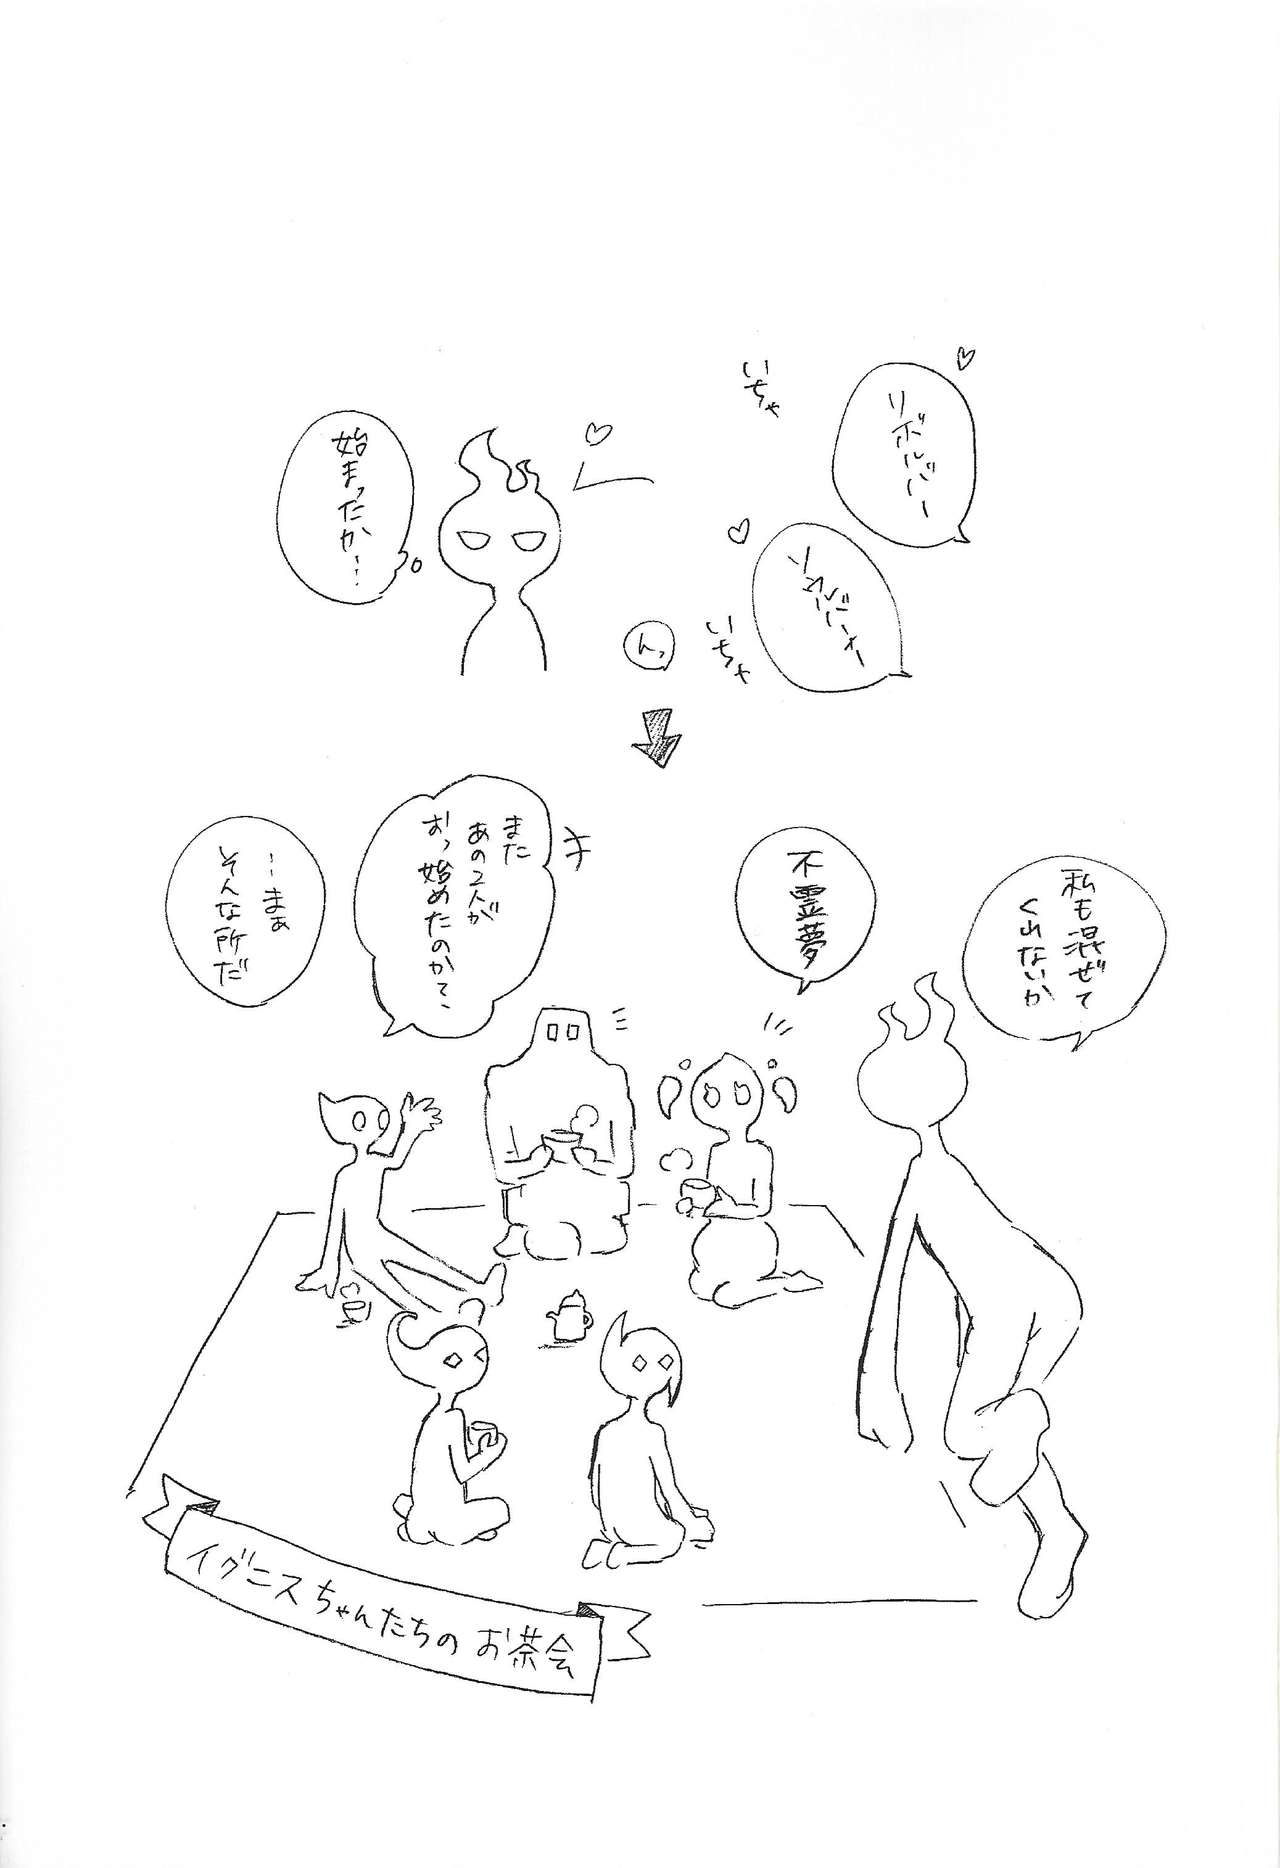 リボルバー
いちゃ
ソウルバーナー
いちゃ
んっ
始まったか…
私も混ぜて
くれないか
不霊夢
また
あの2人が
おっ始めたのかて、
…まぁ
そんな所だ
イグニスちゃんたちのお茶会